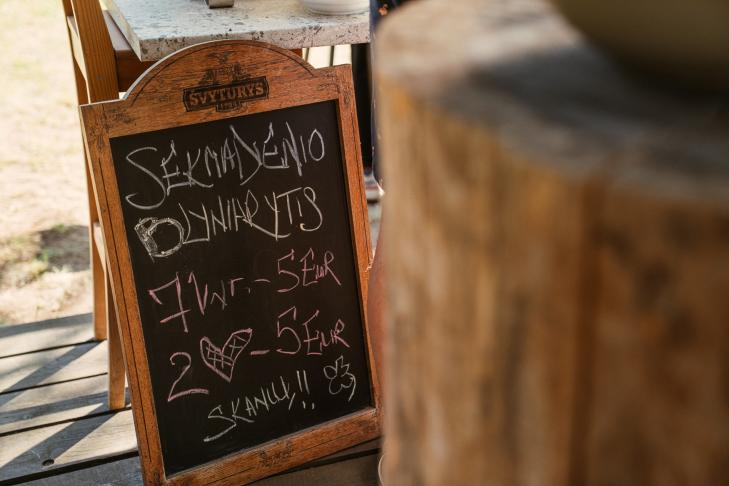 SVYTURYS
SEKMADIENIO
BLYNIARYTIS
7 Vnt. - 5 EUR
2 ♥ - 5 EUR
SKANUU!!